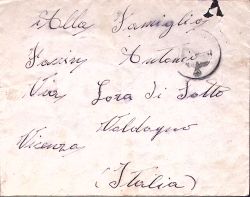 A
Alla Famiglia
Antonio
Via Lora di Sotto
Valdagno
Vicenza
(Italia)